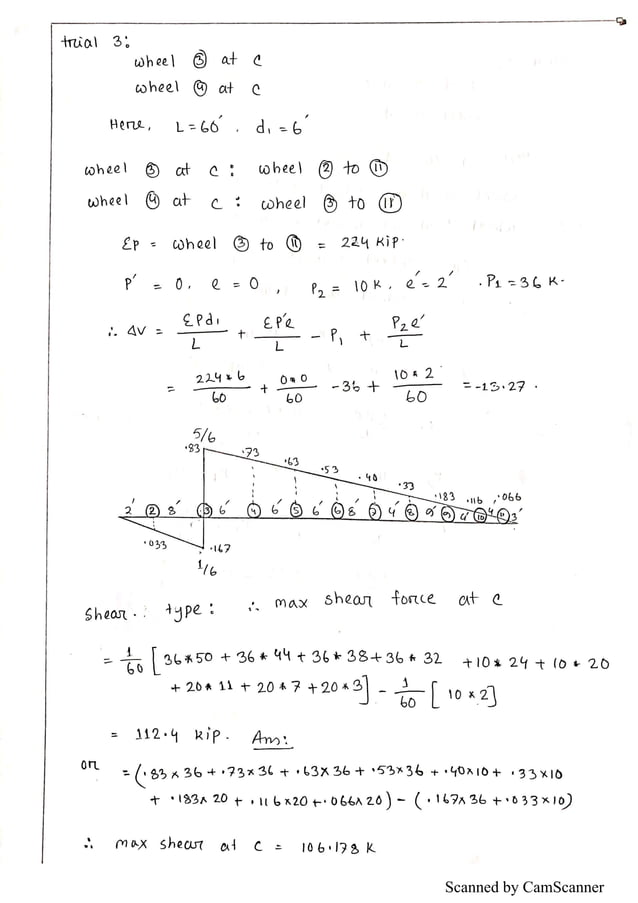 trial 3:
wheel ③ at c
wheel ④ at c
Here, L = 60′, d₁ = 6′
wheel ③ at c : wheel ② to ⑪
wheel ④ at c : wheel ③ to ⑪
ΣP = wheel ③ to ⑪ = 224 kip.
P′ = 0, e = 0, P₂ = 10 K, e′ = 2′ . P₁ = 36 K.
∴ ΔV = ΣPd₁/L + ΣP′e/L − P₁ + P₂e′/L
= 224*6/60 + 0*0/60 − 36 + 10*2/60 = -13.27.
5/6
.83 .73 .63 .53 .40 .33 .183 .116 .066
2′ ② 8′ ③ 6′ ④ 6′ ⑤ 6′ ⑥ 8′ ⑦ 4′ ⑧ 9′ ⑨ 4′ ⑩ 4 ⑪ 3′
.033 .167
1/6
Shear.. type: ∴ max shear force at c
= 1/60 [36*50 + 36*44 + 36*38 + 36*32 + 10*24 + 10*20
+ 20*11 + 20*7 + 20*3] − 1/60 [10×2]
= 112.4 kip. Ans:
or = (.83×36 + .73×36 + .63×36 + .53×36 + .40×10 + .33×10
+ .183×20 + .116×20 + .066×20) − (.167×36 + .033×10)
∴ max shear at c = 106.178 K
Scanned by CamScanner